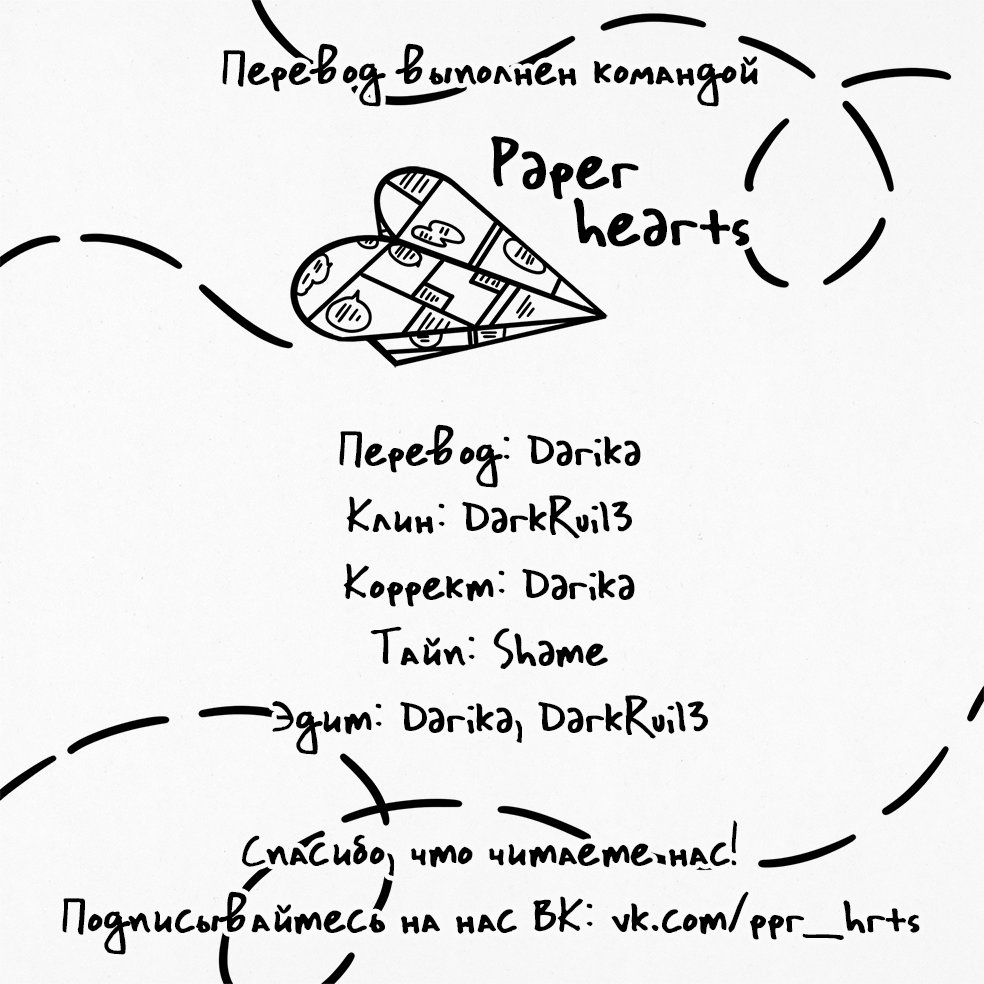 Перевод выполнен командой
Paper
hearts
Перевод: Darika
Клин: DarkRui13
Коррект: Darika
Тайп: Shame
Эдит: Darika, DarkRui13
Спасибо, что читаете нас!
Подписывайтесь на нас ВК: vk.com/ppr_hrts